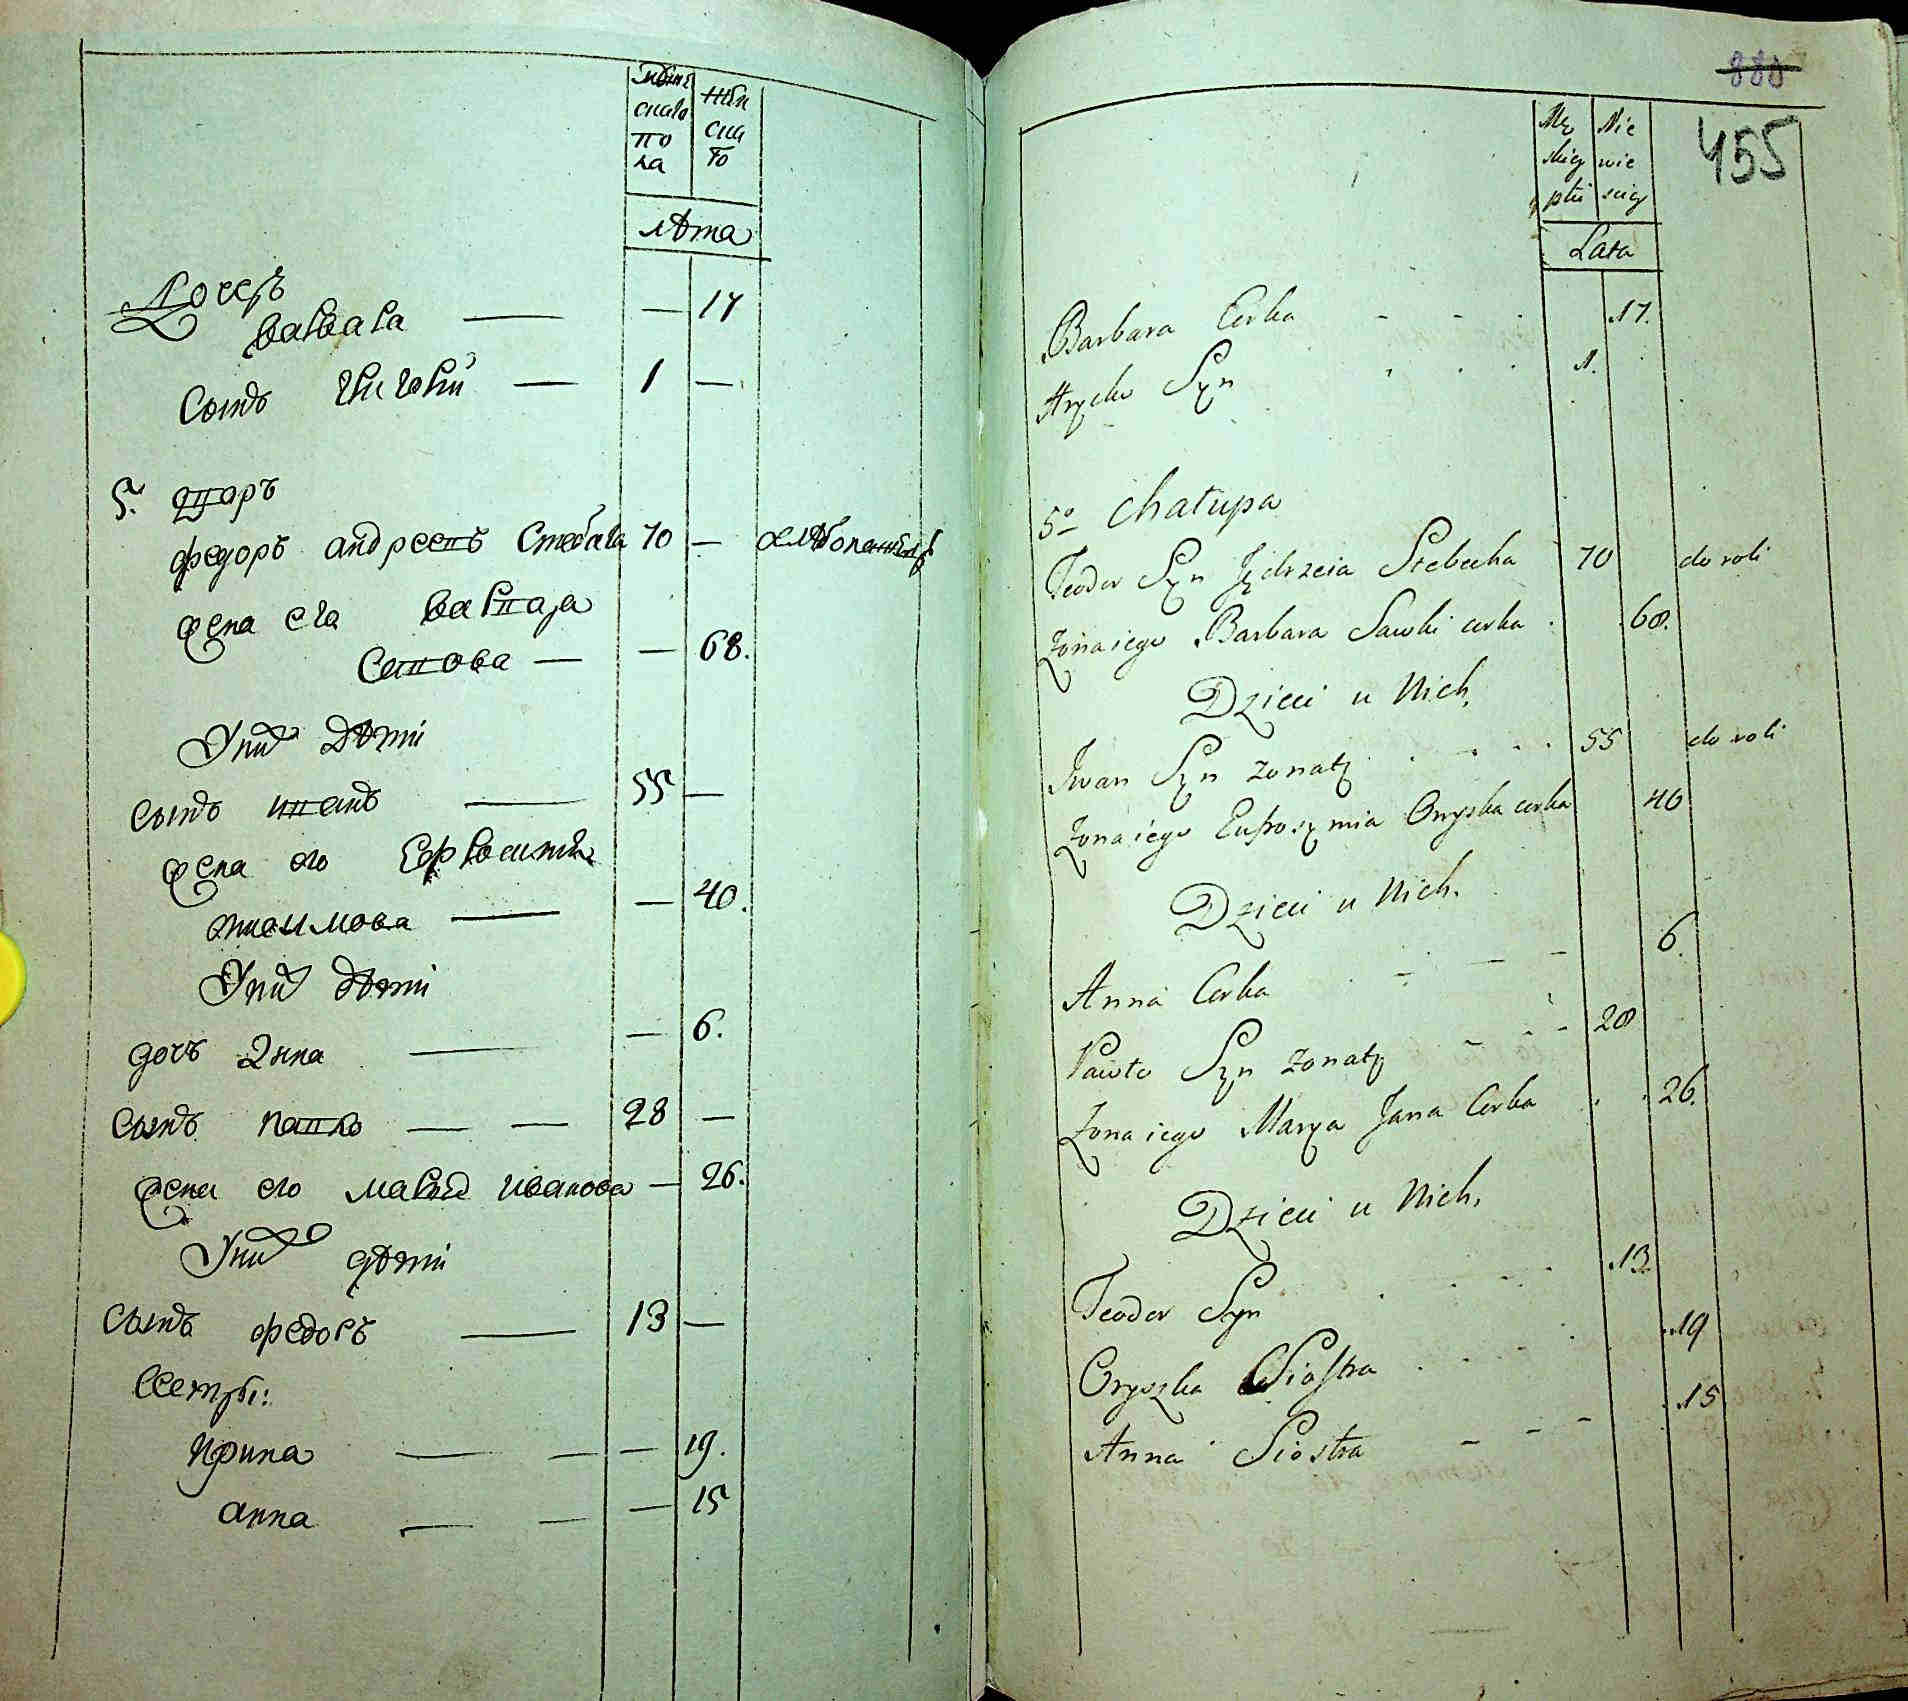 мужескаго пола
женскаго
лѣта
Дочеръ
варвара — — 17
Сынъ григорий — 1 —
5. дворъ
федоръ андреевъ Стебаха 70 — хлѣбопашецъ
жена его варвара
Савова — — 68.
У них дѣти
сынъ иванъ — 55 —
жена его Ефросиния
анисимова — — 40.
У них дѣти
дочъ Анна — — 6.
сынъ павло — — 28 —
жена его мария иванова — 26.
У них дѣти
сынъ федоръ — 13 —
Сестры:
ирина — — — 19.
анна — — — 15
880
455
Mę Nie
skiey wie
płci sciey
Lata
Barbara Corka - - . 17.
Hryćko Syn . . . 1.
5o Chałupa
Teodor Syn Jędrzeia Stebecha 70 do roli
Zona iego Barbara Sawki corka . 68.
Dzieci u Nich.
Jwan Syn zonaty . . . 55 do roli
Zona iego Eufrozymia Onyska corka 40
Dzieci u Nich.
Anna Corka - — - 6.
Pawło Syn zonaty - - - 28
Zona iego Marya Jana Corka . . 26.
Dzieci u Nich.
Teodor Syn . . . 13.
Oryszka Siostra . . . 19
Anna Siostra - - - 15